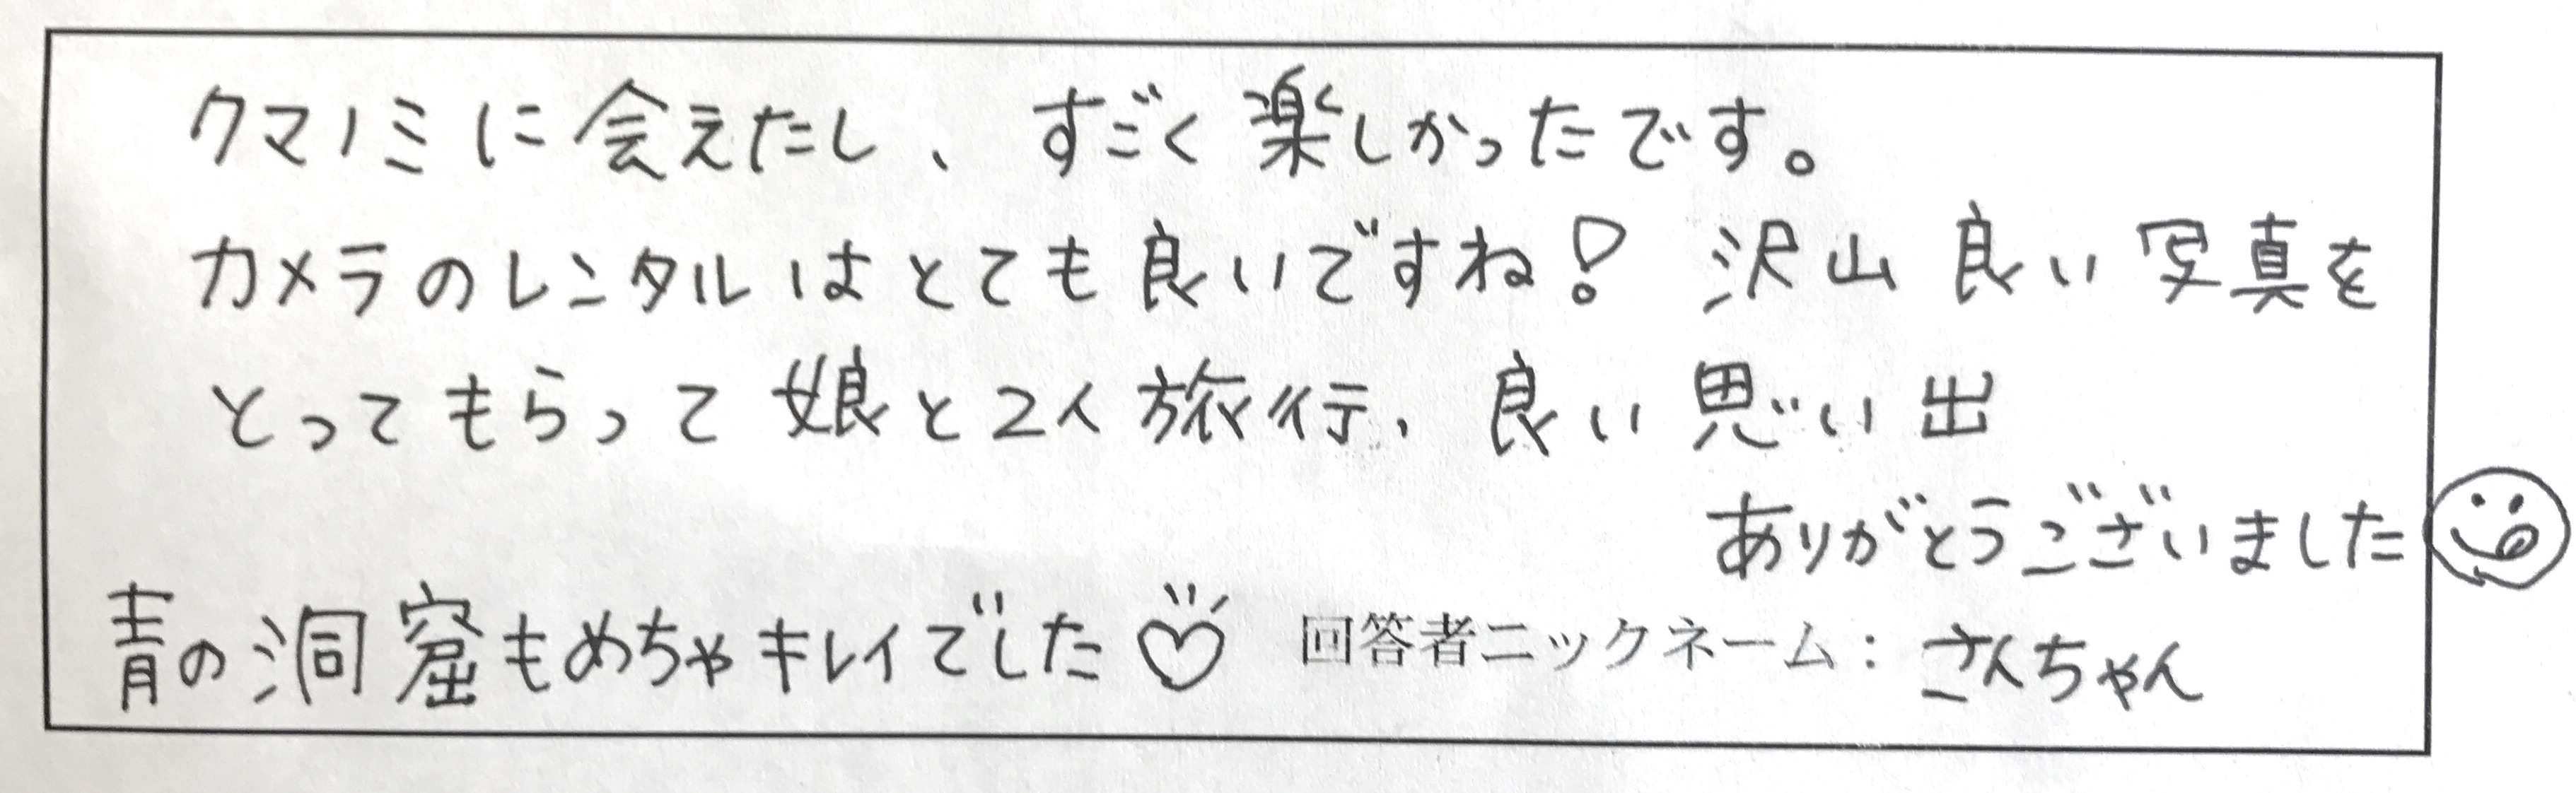 クマノミに会えたし、すごく楽しかったです。
カメラのレンタルはとても良いですね! 沢山良い写真を
とってもらって娘と2人旅行、良い思い出
ありがとうございました
青の洞窟もめちゃキレイでした♡ 回答者ニックネーム：さんちゃん